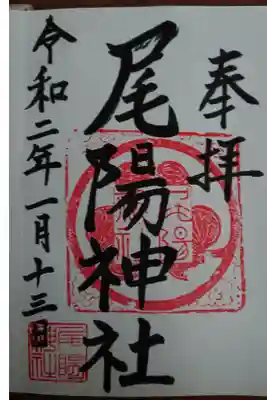 奉拝
尾陽神社
令和二年一月十三日
尾陽神社